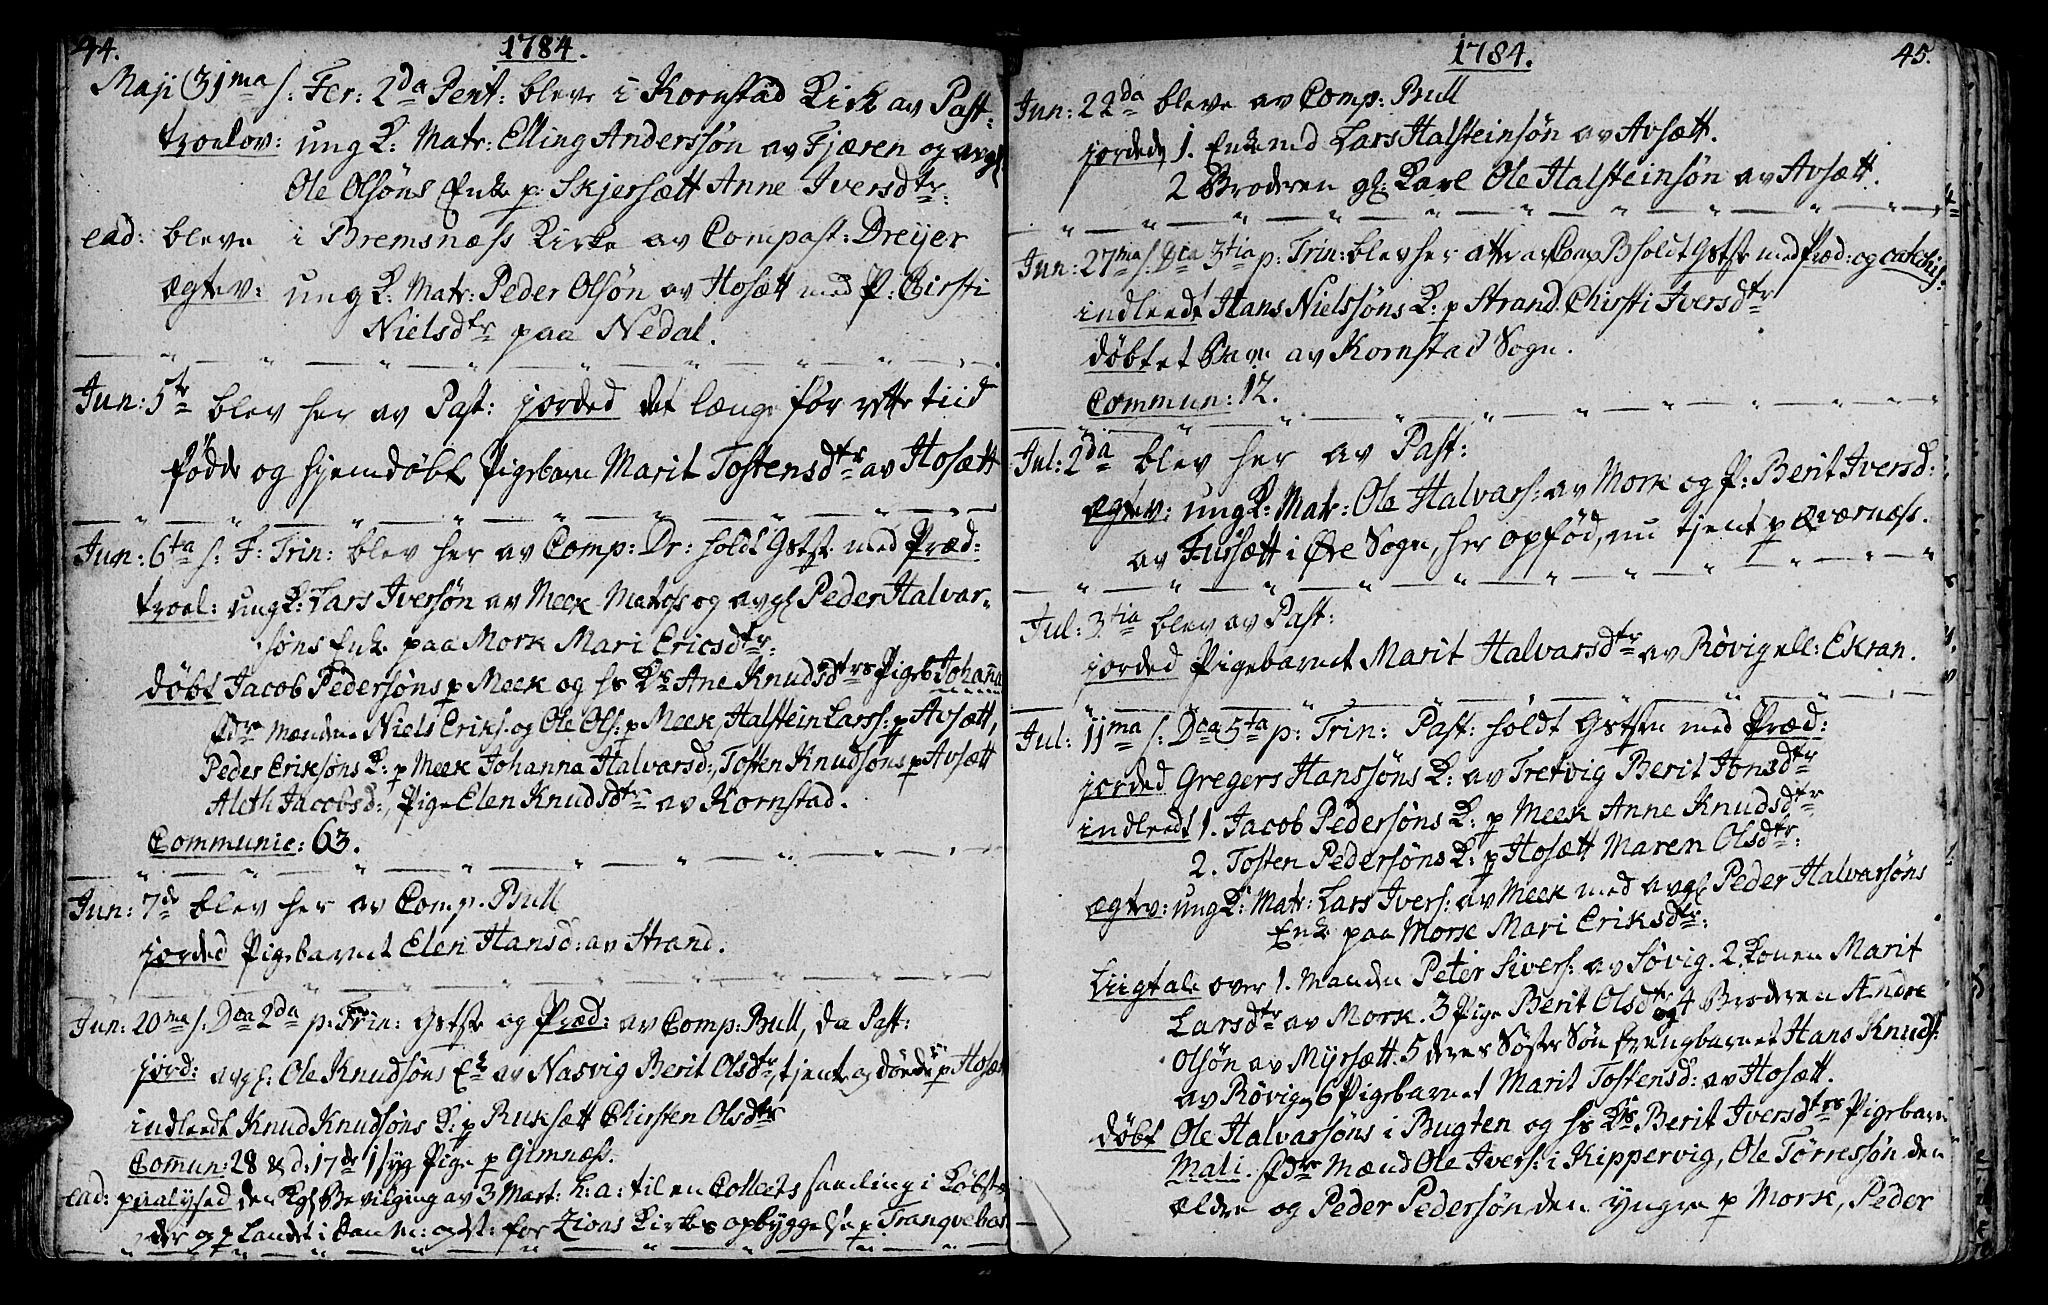 44.
1784.
Maji (31ma s: Fer: 2da Pent: bleve i Kornstad Kirk av Past:
troelov: ung K: Matr: Elling Anderssøn av Fjæren og avgl
Ole Olsøns Enke p. Skjersætt Anne Iversdtr:
ead: bleve i Bremsnæss Kirke av Compast: Dreÿer
Ægtev: ung K: Matr: Peder Olsøn av Hosætt med P: Chirsti
Nielsdtr paa Nedal.
Jun: 5te blev her av Past: jorded det længe før rette tiid
fødde og hjemdøbt Pigebarn Marit Tostensdtr av Hosætt
Jun: 6ta s: F: Trin: blev her av Comp: Dr: holdt Gstst med Præd:
troel: ung K: Lars Iversøn av Meek Matros og avgl Peder Halvar-
søns Enke paa Mork Mari Ericsdtr:
døbt Jacob Pedersøns p Meek og hs Ks Ane Knudsdtrs Pigeb Johana
fdre Mændene Niels Eriks: og Ole Ols: p Meek, Halstein Larss: p Avsætt,
Peder Eriksøns K: p Meek Johanna Halvarsd:, Tosten Knudsøns p Avsætt
Aleth Jacobsd:, Pige Elen Knudsdtr av Kornstad.
Communic: 63.
Jun: 7de blev her av Comp. Bull
jorded Pigebarnet Elen Hansd: av Strand.
Jun: 20ma s: Dca 2da p: Trin: Gstst og Præd: av Comp: Bull, da Past:
jord: avgl: Ole Knudsøns Ek av Nasvig Berit Olsdtr, tjent og døde p Hosæt
indleedt Knud Knudsøns K: p Ruksætt Chirsten Olsdtr
Comun: 28 & d: 17de 1 syg Pige p Gimnæss.
ead: paalysed den Kgl Bevilging av 3 Mart: h: a: til en Collects samling i Købstæ
der og p Landet i Danm: og st: for Zions Kirkes opbyggelse p Tranquebar
1784.
45.
Jun: 22da bleve av Comp: Bull
jordede 1. Enkemd Lars Halsteinsøn av Avsætt.
2 Broderen gl: Karl Ole Halsteinsøn av Avsætt.
Jun: 27ma s: Dca 3tia p: Trin: blev her atter av Comp B holdt Gstst med Præd: og catechis:
indleedt Hans Nielssøns K: p Strand Chirsti Iversdtr
døbt et Barn av Kornstad Sogn.
Commun: 12.
Jul: 2da blev her av Past:
ægtev: ung K: Matr: Ole Halvars: av Mork og P: Berit Iversd:
av Fussætt i Øre Sogn, her opfød, nu tjent p Qværnæss.
Jul: 3tia blev av Past:
jorded Pigebarnet Marit Halvarsdtr av Røvig ell: Ekran.
Jul: 11ma s: Dca 5ta p: Trin: Past: holdt Gstsn med Præd:
jorded Gregers Hanssøns K: av Tretvig Berit Jonsdtr
indleedt 1. Jacob Pedersøns K: p Meek Anne Knudsdtr
2. Tosten Pedersøns K: p Hosætt Maren Olsdtr:
ægtev: ung K: Matr: Lars Ivers: av Meek med avgl Peder Halvarsøns
Enke paa Mork Mari Eriksdtr:
Liigtale over 1. Manden Peter Sivers: av Søvig. 2. Konen Marit
Larsdtr av Mork. 3 Pige Berit Olsdtr og 4 Broderen Andre
Olsøn av Myrsætt. 5 deres Søster Søn Drengbarnet Hans Knuds:
av Røvig, 6 Pigebarnet Marit Tostensd: av Hosætt.
døbt Ole Halvarsøns i Bugten og hs Ks Berit Iversdtrs Pigebarn
Mali. fdre Mænd Ole Ivers: i Kippervig, Ole Tørressøn den
ældre og Peder Pedersøn den yngre p Mork, Peder